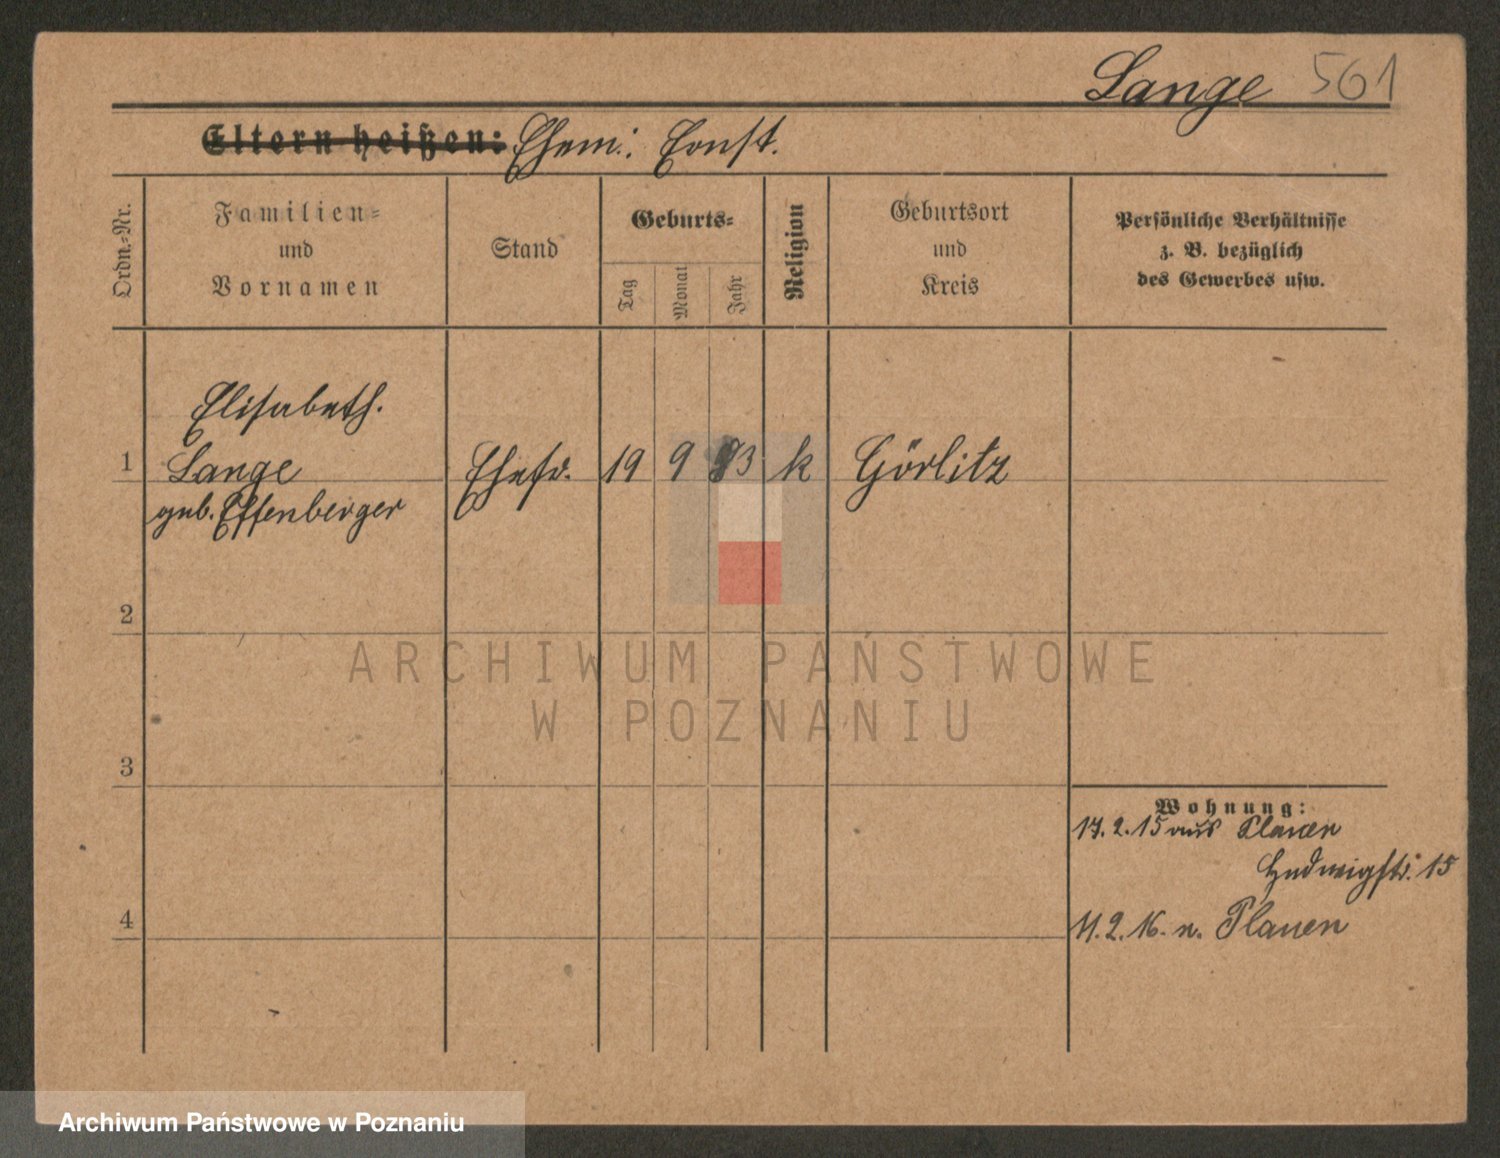 Lange 561
Eltern heißen: Ehem: Ernst.
Ordn.-Nr.
Familien-
und
Vornamen
Stand
Geburts-
Tag
Monat
Jahr
Religion
Geburtsort
und
Kreis
Persönliche Verhältnisse
z. B. bezüglich
des Gewerbes usw.
Elisabeth.
1 Lange Ehefr. 19 9 93 k Görlitz
geb. Effenberger
2
ARCHIWUM PAŃSTWOWE
W POZNANIU
3
Wohnung:
17. 2. 15 aus Plauen
Hedwigstr. 15
4
11. 2. 16. n. Plauen
Archiwum Państwowe w Poznaniu